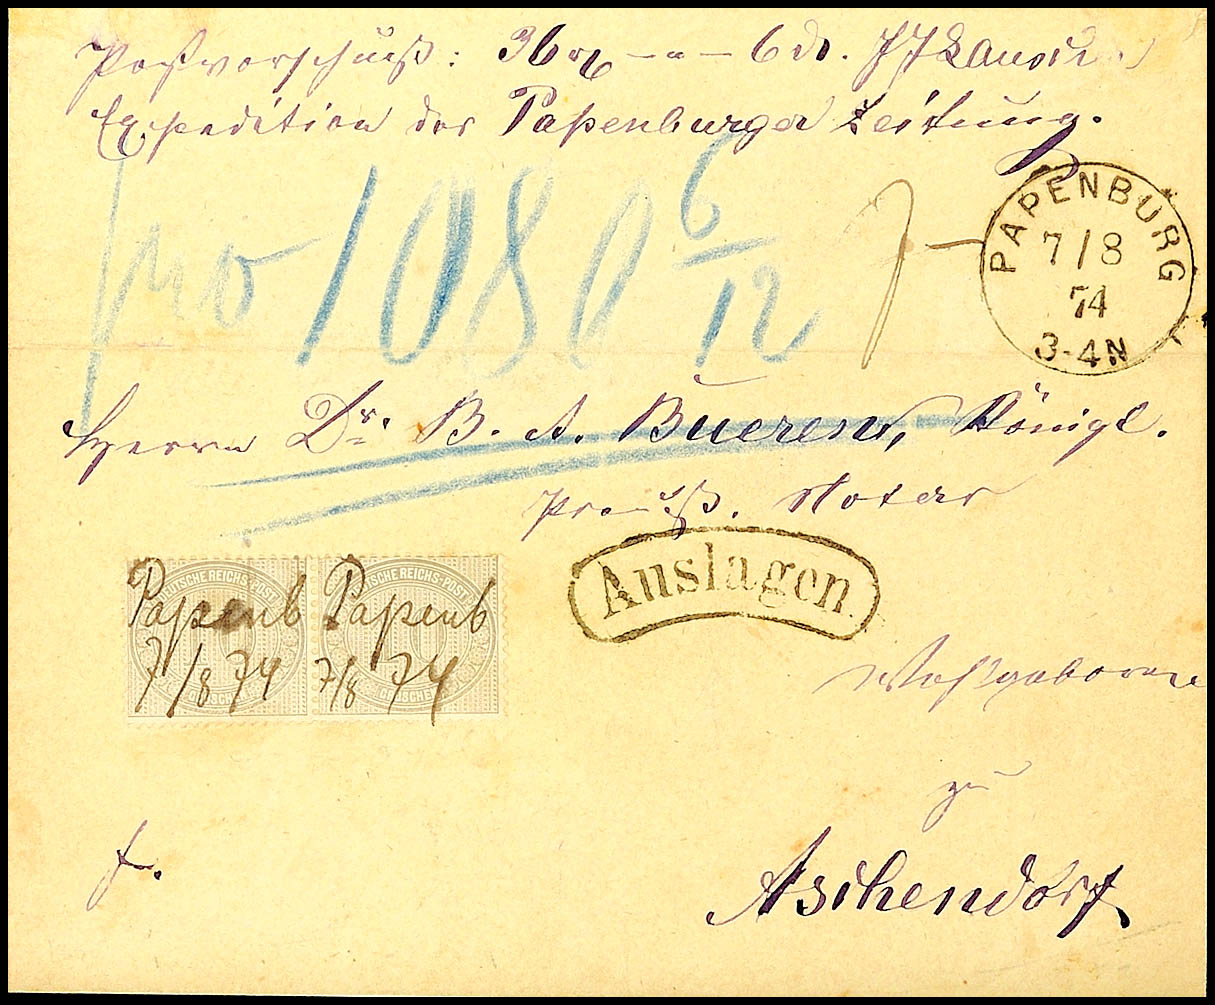 Postvorschuß: 36
Expedition der Papenburger Zeitung.
No 1080 6/12
PAPENBURG
7/8
74
3-4N
Herrn Dr. B. A. Bueren, Königl.
Preuß. Notar
DEUTSCHE REICHS-POST DEUTSCHE REICHS-POST
Papenb Papenb
7/8 74 7/8 74
GROSCHEN GROSCHEN
Auslagen
Wohlgeboren
zu
fr.
Aschendorf